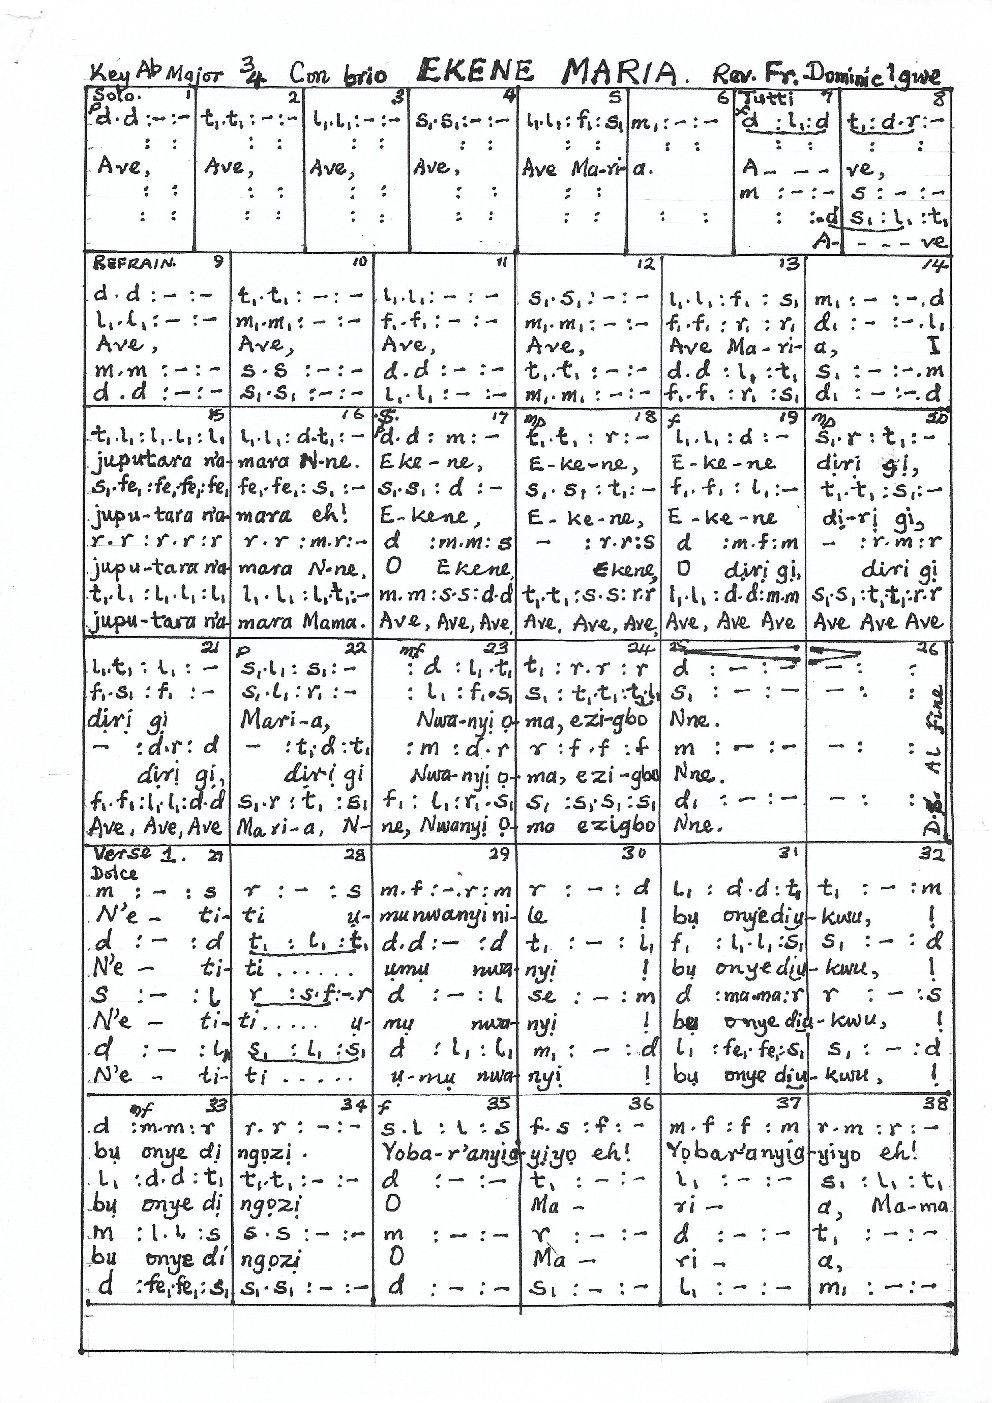 Key Ab Major 3/4 Con brio EKENE MARIA. Rev. Fr. Dominic Igwe
Solo. 1 2 3 4 5 6 Tutti 7 8
p d.d :-:- t₁.t₁ :-:- l₁.l₁ :-:- s₁.s₁ :-:- l₁.l₁ : f₁ : s₁ m₁ : - : - f d : l₁ : d t₁ : d.r : -
: : : : : : : : : : : : : : : :
Ave, Ave, Ave, Ave, Ave Ma-ri-a. A - - - ve,
: : : : : : : : : : m : - : - s : - : -
: : : : : : : : : : : : : :.d s₁ : l₁ : t₁
A- - - - ve
REFRAIN. 9 10 11 12 13 14
d.d :-:- t₁.t₁ :-:- l₁.l₁ :-:- s₁.s₁ :-:- l₁.l₁ : f₁ : s₁ m₁ : - : -.d
l₁.l₁ :-:- m₁.m₁ :-:- f₁.f₁ :-:- m₁.m₁ :-:- f₁.f₁ : r₁ : r₁ d₁ : - : -.l₁
Ave, Ave, Ave, Ave, Ave Ma-ri-a, I
m.m :-:- s.s :-:- d.d :-:- t₁.t₁ :-:- d.d : l₁ : t₁ s₁ : - : -.m
d.d :-:- s₁.s₁ :-:- l₁.l₁ :-:- m₁.m₁ :-:- f₁.f₁ : r₁ : s₁ d₁ : - : -.d
15 16 .S. 17 mp 18 f 19 mp 20
t₁.l₁ : l₁.l₁ : l₁ l₁.l₁ : d.t₁ : - p d.d : m : - t₁.t₁ : r : - l₁.l₁ : d : - s₁.r : t₁ : -
juputara n'a-mara N-ne. Eke-ne, E-ke-ne, E-ke-ne diri gi,
s₁.fe₁ : fe₁.fe₁ : fe₁ fe₁.fe₁ : s₁ : - s₁.s₁ : d : - s₁.s₁ : t₁ : - f₁.f₁ : l₁ : - t₁.t₁ : s₁ : -
jupu-tara n'a-mara eh! E-kene, E-ke-ne, E-ke-ne dị-rị gị,
r.r : r.r : r r.r : m.r : - d : m.m : s - : r.r : s d : m.f : m - : r.m : r
jupu-tara n'a-mara N-ne. O Ekene, Ekene, O diri gi, diri gi
t₁.l₁ : l₁.l₁ : l₁ l₁.l₁ : l₁.t₁ : - m.m : s.s : d.d t₁.t₁ : s.s : r.r l₁.l₁ : d.d : m.m s₁.s₁ : t₁.t₁ : r.r
jupu-tara n'a-mara Mama. Ave, Ave, Ave, Ave, Ave, Ave, Ave, Ave Ave Ave Ave Ave
21 p 22 mf 23 24 25 26
l₁.t₁ : l₁ : - s₁.l₁ : s₁ : - : d : l₁.t₁ t₁ : r.r : r d : - : - - : :
f₁.s₁ : f₁ : - s₁.l₁ : r₁ : - : l₁ : f₁.s₁ s₁ : t₁.t₁ : t₁.l₁ s₁ : - : - - : :
diri gi Mari-a, Nwa-nyị ọ-ma, ezi-gbo Nne.
- : d.r : d - : t₁.d : t₁ : m : d.r r : f.f : f m : - : - - : :
diri gi, diri gi Nwa-nyị ọ-ma, ezi-gbo Nne.
f₁.f₁ : l₁.l₁ : d.d s₁.r : t₁ : s₁ f₁ : l₁ : r₁.s₁ s₁ : s₁.s₁ : s₁ d₁ : - : - - : :
Ave, Ave, Ave Mari-a, N-ne, Nwanyị Ọ-ma ezigbo Nne.
D.S. Al fine
Verse 1. 27 28 29 30 31 32
Dolce
m : - : s r : - : s m.f : -.r : m r : - : d l₁ : d.d : t₁ t₁ : - : m
N'e - ti-ti ụ-mụnwanyị ni-le ! bụ onye dịụ-kwu, !
d : - : d t₁ : l₁ : t₁ d.d : - : d t₁ : - : l₁ f₁ : l₁.l₁ : s₁ s₁ : - : d
N'e - ti-ti ...... ụmụ nwa-nyị ! bụ onye dịụ-kwu, !
s : - : l r : s.f : -.r d : - : l se : - : m d : ma.ma : r r : - : s
N'e - ti-ti ..... ụ-mụ nwa-nyị ! bụ onye dịụ-kwu, !
d : - : l₁ s₁ : l₁ : s₁ d : l₁ : l₁ m₁ : - : d l₁ : fe₁.fe₁ : s₁ s₁ : - : d
N'e - ti-ti ..... ụ-mụ nwa-nyị ! bụ onye dịụ-kwu, !
mf 33 34 f 35 36 37 38
d : m.m : r r.r : - : - s.l : l : s f.s : f : - m.f : f : m r.m : r : -
bụ onye dị ngọzị. Yoba-r'anyịg-yịyọ eh! Yọbar'anyịg-yịyo eh!
l₁ : d.d : t₁ t₁.t₁ : - : - d : - : - t₁ : - : - l₁ : - : - s₁ : l₁ : t₁
bụ onye dị ngọzị O Ma - ri - a, Ma-ma
m : l.l : s s.s : - : - m : - : - r : - : - d : - : - t₁ : - : -
bụ onye dị ngọzị O Ma - ri - a,
d : fe₁.fe₁ : s₁ s₁.s₁ : - : - d : - : - s₁ : - : - l₁ : - : - m₁ : - : -